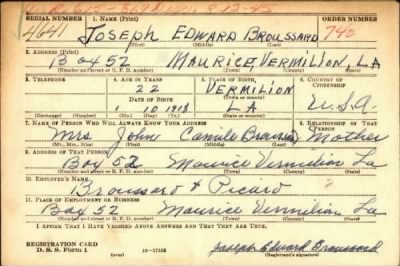 SERIAL NUMBER 1. NAME (Print) ORDER NUMBER
4641 JOSEPH EDWARD BROUSSARD 740
(First) (Middle) (Last)
2. ADDRESS (Print)
BOX 52 MAURICE, VERMILION, LA
(Number and Street or R. F. D. number) (Town) (County) (State)
3. TELEPHONE 4. AGE IN YEARS 5. PLACE OF BIRTH 6. COUNTRY OF CITIZENSHIP
22 VERMILION
DATE OF BIRTH (Town or county)
1 10 1918 LA U.S.A.
(Exchange) (Number) (Mo.) (Day) (Yr.) (State or country)
7. NAME OF PERSON WHO WILL ALWAYS KNOW YOUR ADDRESS 8. RELATIONSHIP OF THAT PERSON
Mrs John Camile Broussard Mother
(Mr., Mrs., Miss) (First) (Middle) (Last)
9. ADDRESS OF THAT PERSON
Box 52 Maurice Vermilion La
(Number and street or R. F. D. number) (Town) (County) (State)
10. EMPLOYER'S NAME
Broussard & Picard
11. PLACE OF EMPLOYMENT OR BUSINESS
Box 52 Maurice Vermilion La
(Number and street or R. F. D. number) (Town) (County) (State)
I AFFIRM THAT I HAVE VERIFIED ABOVE ANSWERS AND THAT THEY ARE TRUE.
REGISTRATION CARD
D. S. S. Form 1 16-17105 Joseph Edward Broussard
(Registrant's signature)